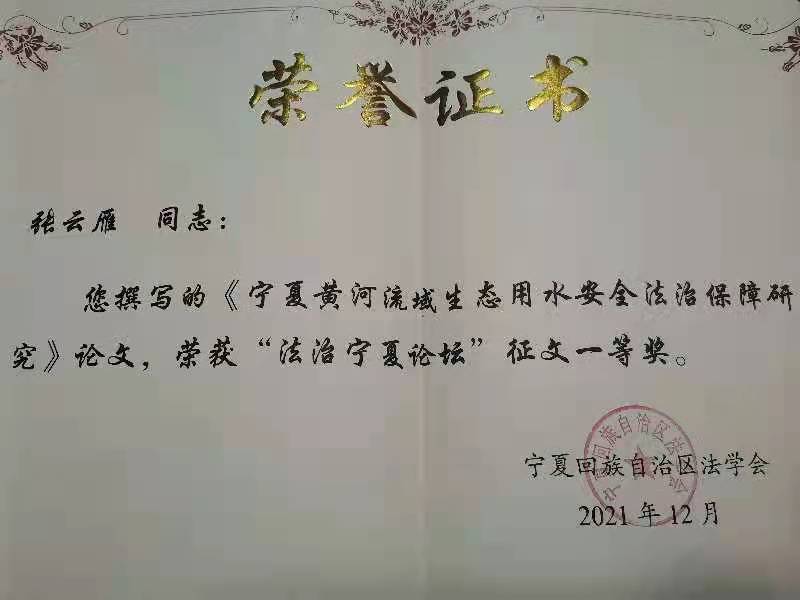 荣誉证书
张云雁 同志：
您撰写的《宁夏黄河流域生态用水安全法治保障研
究》论文，荣获“法治宁夏论坛”征文一等奖。
宁夏回族自治区法学会
宁夏回族自治区法学会
2021年12月